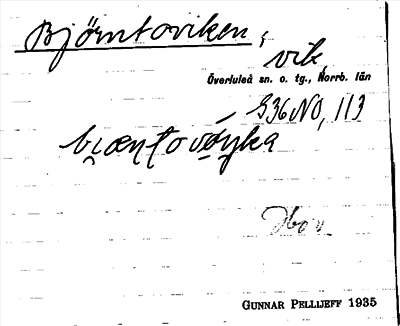 Björntoviken,
vik,
Överluleå sn. o. tg., Norrb. län
S36NO, 113
GUNNAR PELLIJEFF 1935